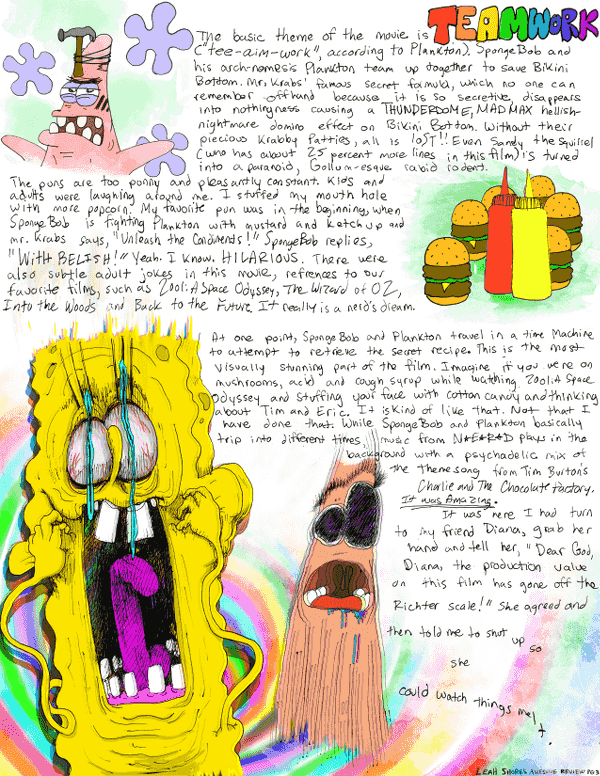 The basic theme of the movie is TEAMWORK
("tee-aim-work", according to Plankton). SpongeBob and
his arch-nemesis Plankton team up together to save Bikini
Bottom. Mr. Krabs' famous secret formula, which no one can
remember offhand because it is so secretive, disappears
into nothingness causing a THUNDERDOME, MAD MAX hellish-
nightmare domino effect on Bikini Bottom. Without their
precious Krabby Patties, all is lOST!! Even Sandy the Squirrel
(who has about 25 percent more lines in this film) is turned
into a paranoid, Gollum-esque rabid rodent.
The puns are too punny and pleasantly constant. Kids and
adults were laughing around me. I stuffed my mouth hole
with more popcorn. My favorite pun was in the beginning, when
SpongeBob is fighting Plankton with mustard and ketchup and
Mr. Krabs says, "Unleash the Condiments!" SpongeBob replies,
"WITH RELISH!" Yeah. I know. HILARIOUS. There were
also subtle adult jokes in this movie, refrences to our
favorite films, such as 2001: A Space Odyssey, The Wizard of OZ,
Into the Woods and Back to the Future. It really is a nerd's dream.
At one point, SpongeBob and Plankton travel in a time machine
to attempt to retrieve the secret recipe. This is the most
visually stunning part of the film. Imagine if you were on
mushrooms, acid and cough syrup while watching 2001: A Space
Odyssey and stuffing your face with cotton candy and thinking
about Tim and Eric. It is kind of like that. Not that I
have done that. While SpongeBob and Plankton basically
trip into different times, music from N.E.R.D plays in the
background with a psychadelic mix of
the theme song from Tim Burton's
Charlie and The Chocolate Factory.
It was Amazing.
It was here I had turn
to my friend Diana, grab her
hand and tell her, "Dear God,
Diana, the production value
on this film has gone off the
Richter scale!" She agreed and
then told me to shut up so
she
could watch things melt.
LEAH SHORES AWESOME REVIEW PG 3